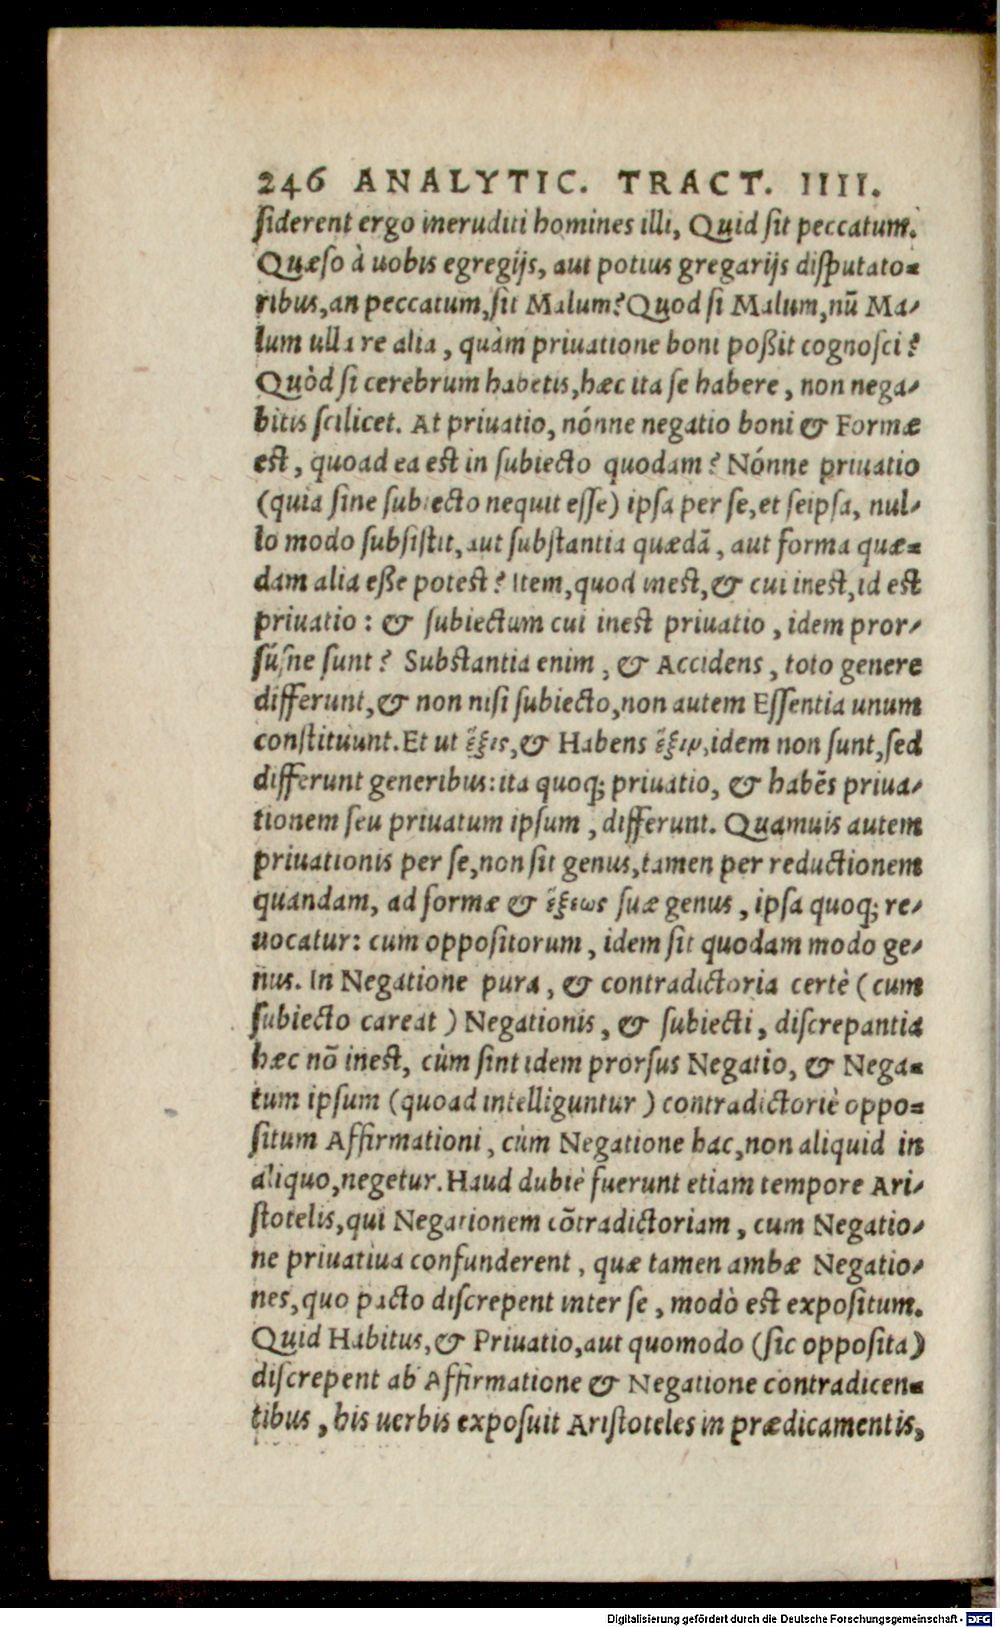 246 ANALYTIC. TRACT. IIII.
siderent ergo ineruditi homines illi, Quid sit peccatum.
Quæso à uobis egregijs, aut potius gregarijs disputato=
ribus, an peccatum, sit Malum? Quod si Malum, nū Ma-
lum ulla re alia, quàm priuatione boni poßit cognosci?
Quòd si cerebrum habetis, hæc ita se habere, non nega-
bitis scilicet. At priuatio, nónne negatio boni & Formæ
est, quoad ea est in subiecto quodam? Nónne priuatio
(quia sine subiecto nequit esse) ipsa per se, et seipsa, nul-
lo modo subsistit, aut substantia quædā, aut forma quæ=
dam alia eße potest? Item, quod inest, & cui inest, id est
priuatio: & subiectum cui inest priuatio, idem pror-
súsne sunt? Substantia enim, & Accidens, toto genere
differunt, & non nisi subiecto, non autem Essentia unum
constituunt. Et ut ἕξις, & Habens ἕξιν, idem non sunt, sed
differunt generibus: ita quoq; priuatio, & habēs priua-
tionem seu priuatum ipsum, differunt. Quamuis autem
priuationis per se, non sit genus, tamen per reductionem
quandam, ad formæ & ἕξεως suæ genus, ipsa quoq; re-
uocatur: cum oppositorum, idem sit quodam modo ge-
nus. In Negatione pura, & contradictoria certè (cum
subiecto careat) Negationis, & subiecti, discrepantia
hæc nō inest, cùm sint idem prorsus Negatio, & Nega=
tum ipsum (quoad intelliguntur) contradictoriè oppo=
situm Affirmationi, cùm Negatione hac, non aliquid in
aliquo, negetur. Haud dubiè fuerunt etiam tempore Ari-
stotelis, qui Negationem cōtradictoriam, cum Negatio-
ne priuatiua confunderent, quæ tamen ambæ Negatio-
nes, quo pacto discrepent inter se, modò est expositum.
Quid Habitus, & Priuatio, aut quomodo (sic opposita)
discrepent ab Affirmatione & Negatione contradicen=
tibus, his uerbis exposuit Aristoteles in prædicamentis,
Digitalisierung gefördert durch die Deutsche Forschungsgemeinschaft - DFG